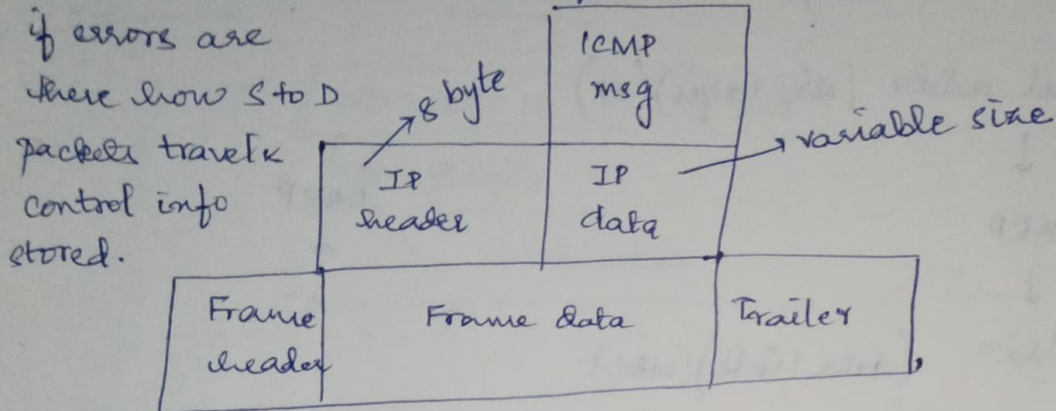 if errors are
there how S to D
packets travel &
control info
stored.
8 byte
ICMP
msg
variable size
IP
header
IP
data
Frame
header
Frame data
Trailer